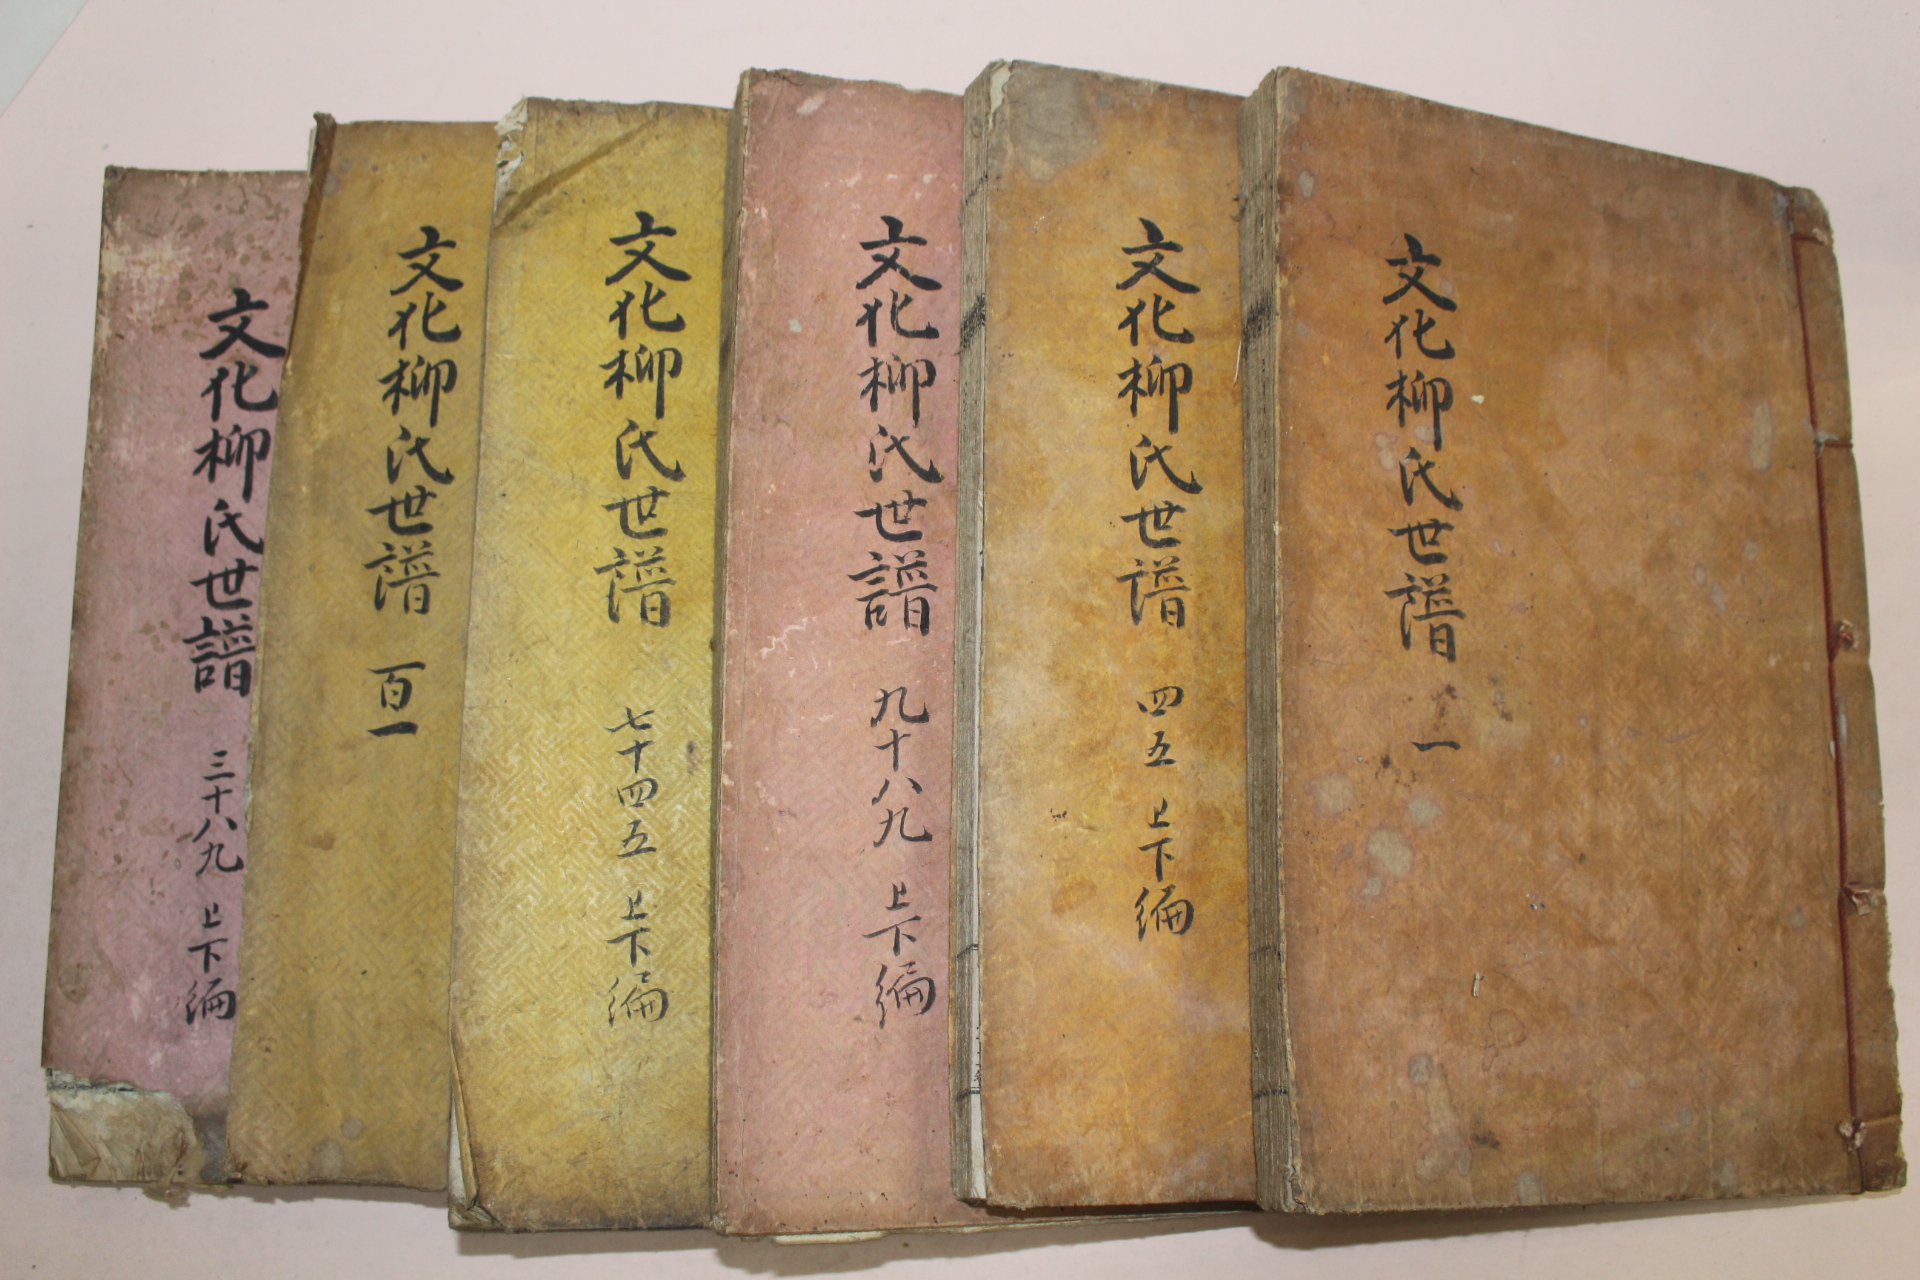 文化柳氏世譜 一
文化柳氏世譜 四五 上下編
文化柳氏世譜 九十八九 上下編
文化柳氏世譜 七十四五 上下編
文化柳氏世譜 百一
文化柳氏世譜 三十八九 上下編